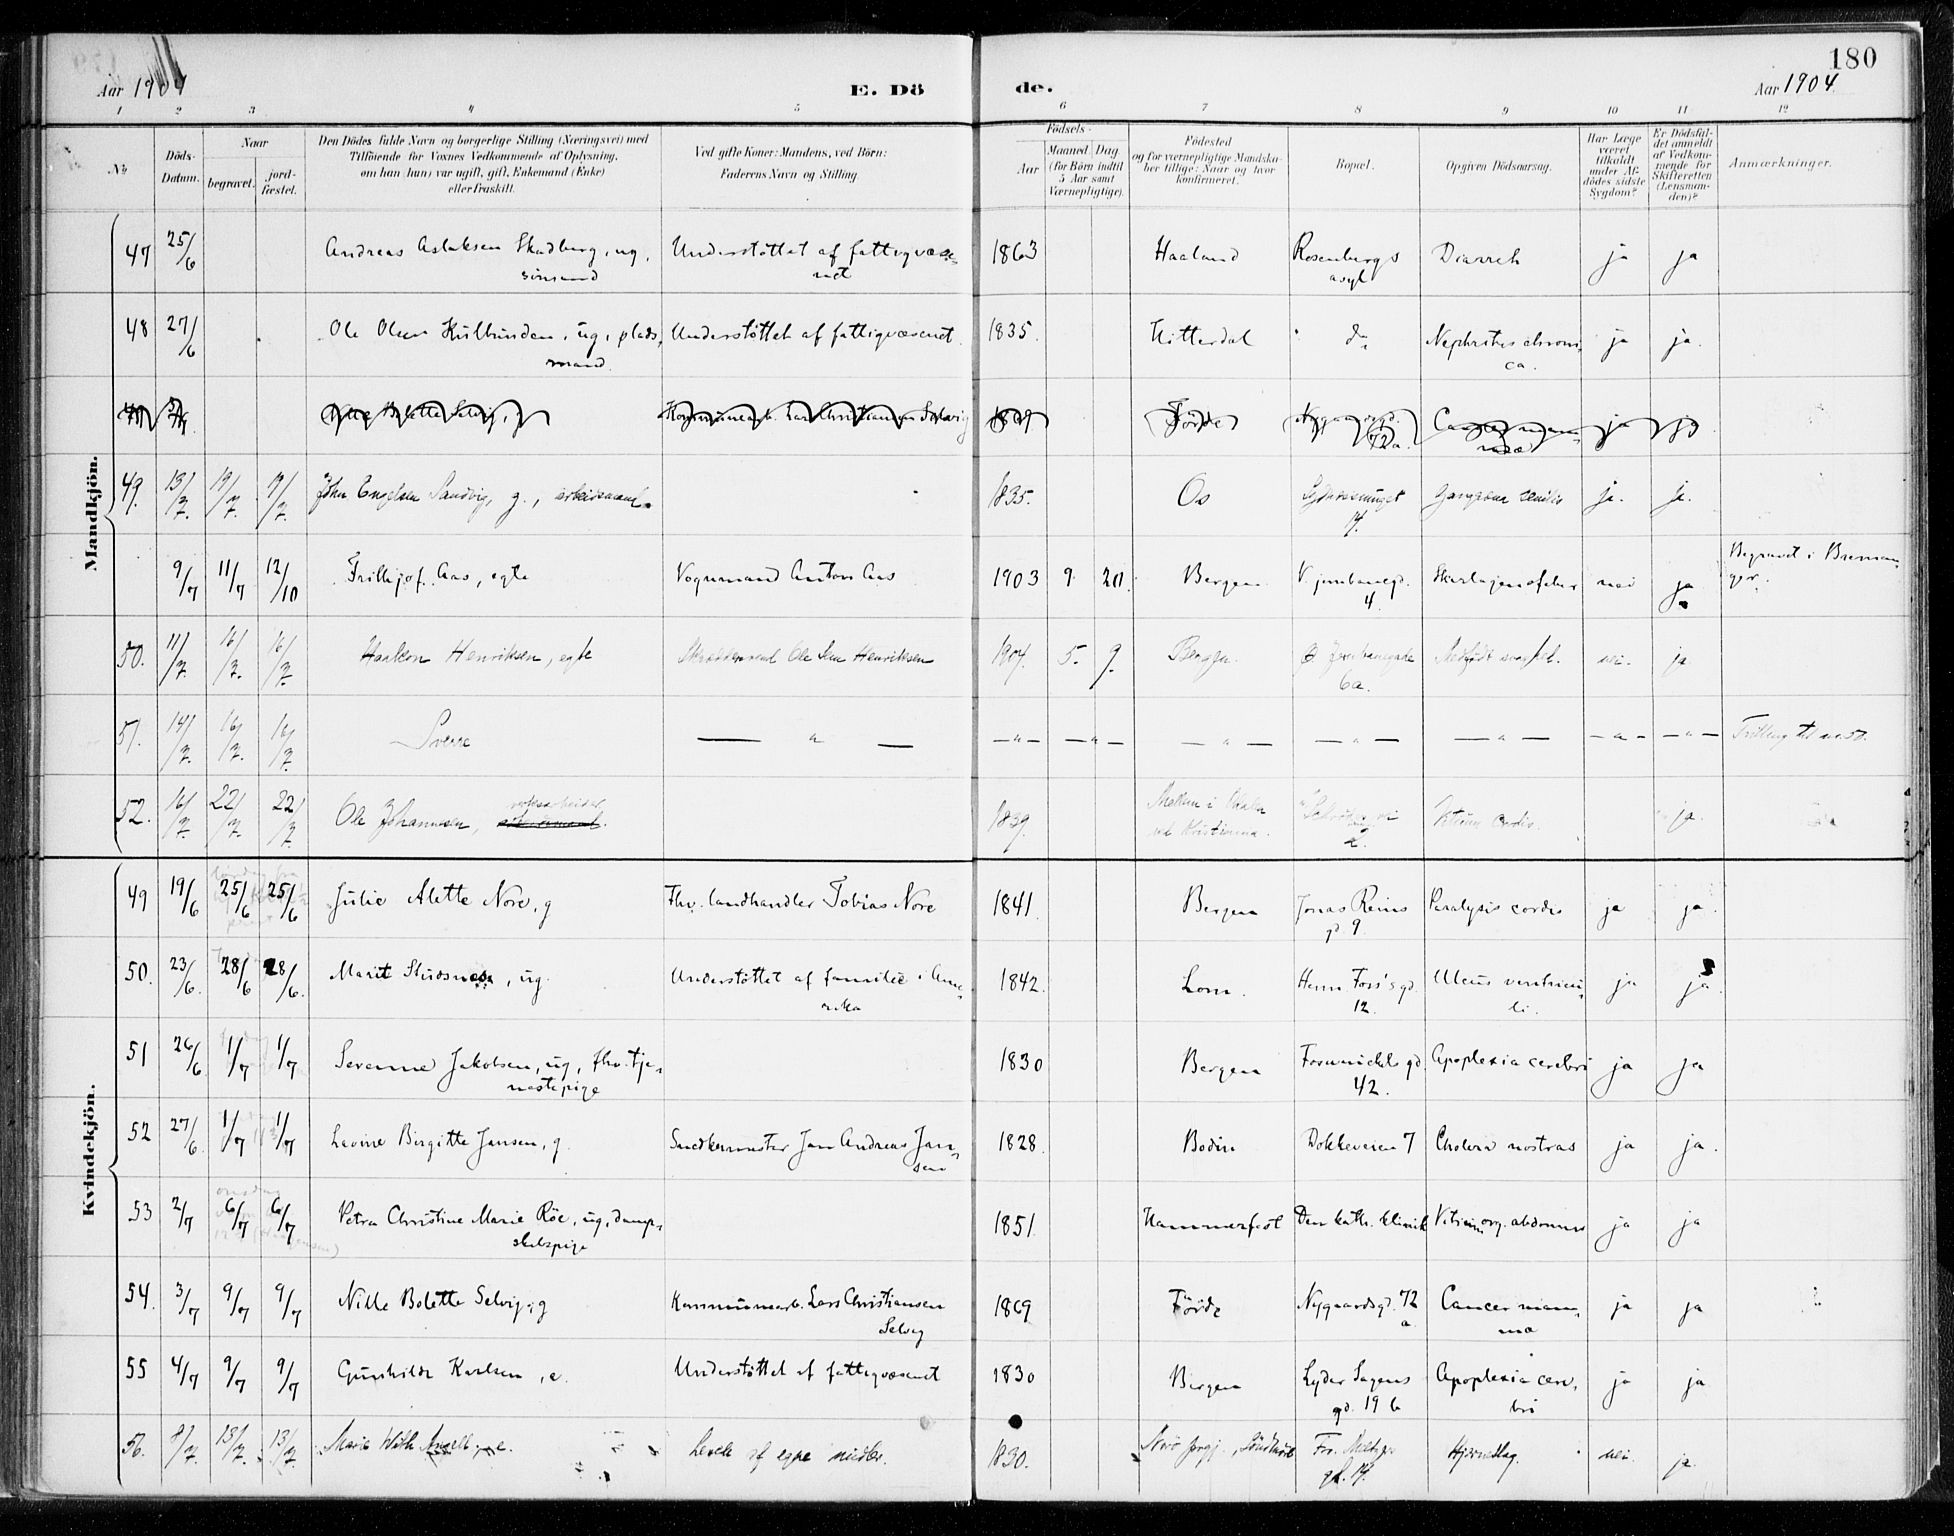 180
Aar 1904 E. Dö de. Aar 1904
1 2 3 4 5 6 7 8 9 10 11 12
No
Döds-Datum.
Naar
begravet.
jord-fæstet.
Den Dödes fulde Navn og borgerlige Stilling (Næringsvei) med
Tilföiende for Voxnes Vedkommende af Oplysning,
om han (hun) var ugift, gift, Enkemand (Enke)
eller fraskilt.
Ved gifte Koner: Mandens, ved Börn:
Faderens Navn og Stilling.
Födsels-
Aar
Maaned. Dag.
(for Börn indtil
5 Aar samt
Værnepligtige).
Födested
og for værnepligtige Mandska-
ber tillige: Naar og hvor
konfirmeret.
Bopæl.
Opgiven Dödsaarsag.
Har Læge
været
tilkaldt
under Af-
dödes sidste
Sygdom?
Er Dödsfal-
det anmeldt
af Vedkom-
mende for
Skifteretten
(Lensman-
den)?
Anmærkninger.
Mandkjön.
47 25/6 Andreas Aslaksen Skadberg, ug, sömand Understöttet af fattigvæsenet 1863 Haaland Rosenbergs asyl Diarreh ja ja
48 27/6 Ole Olsen, ug, pladsmand Understöttet af fattigvæsenet. 1835. Hitterdal do Nephritis chronica. ja ja.
3/7 Nille Bolette Selvig, g Kommunearb. Lars Christiansen Selvig 1869 Förde Nygaardsgd. 72a. Cancer mammæ ja ja
49. 13/7. 19/7. 19/7. John Engelsen Sandvig, g., arbeidsmand. 1835. Os 14. Gangræna senilis ja. ja.
9/7 11/7 12/10 Frithjof Aas, egte Vognmand Anton Aas 1903 9 20. Bergen V. jernbanegd. 4. Skarlagensfeber nei ja Begravet i Bremanger.
50. 11/7. 16/7. 16/7. Haakon Henriksen, egte Ole Henriksen 1904. 5. 9. Bergen. Jernbanegade 6a. Medfödt svaghed. nei. ja
51. 14/7. 16/7. 16/7. Sverre — " — — " — — " — — " — — " — — " — — " — — " — Tvilling til no. 50.
52. 16/7. 22/7. 22/7. Ole Johannesen, verksarbeider. 1839. Vitium cordis. ja.
Kvindekjön.
49 19/6 25/6 25/6 Julie Alette Nore, g Fhv. landhandler Tobias Nore 1841. Bergen Jonas Reins gd. 9. Paralysis cordis ja ja.
50. 23/6. 28/6 28/6. Marit, ug. Understöttet af familie i Amerika 1842. Lom. Herm. Foss's gd. 12. Ulcus ventriculi. ja ja.
51 26/6 1/7 1/7 Severine Jakobsen, ug, fhv. tjenestepige 1830 Bergen 42. Apoplexia cerebri ja ja
52 27/6 1/7 1/7 Lavine Birgitte Jansen, g. Snedkermester Jan Andreas Jansen 1828. Bodin Dokkeveien 7 Cholera nostras ja ja.
53 2/7 6/7 6/7 Petra Christine Marie Röe, ug, dampskibspige 1851. Hammerfest Den kath. klinik Vitium org. abdominis ja ja
54. 3/7 9/7 9/7 Nille Bolette Selvig, g Kommunearb. Lars Christiansen Selvig 1869 Förde Nygaardsgd. 72 a. Cancer mamma ja ja
55 4/7 9/7 9/7 Gunhilde Karlsen, e. Understöttet af fattigvæsenet 1830 Bergen Lyder Sagens gd. 19 b Apoplexia cerebri ja ja
56. 8/7. 13/7. 13/7. Marie With Angell, e. Levede af egne midler. 1830. For. Meltzers gd. 14. Hjerneslag. nei. ja.